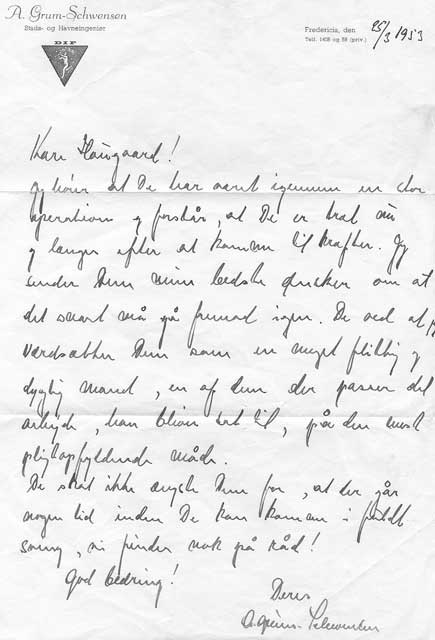 A. Grum-Schwensen
Stads- og Havneingeniør
DIF
Fredericia, den 25/3 1953
Telf. 1408 og 58 (priv.)
Kære Haugaard!
Jeg hører at De har været igennem en stor
operation og forstår, at De er træt nu
og længes efter at komme til kræfter. Jeg
sender Dem mine bedste ønsker om at
det snart må gå fremad igen. De ved at jeg
værdsætter Dem som en meget flittig og
dygtig mand, en af dem der passer det
arbejde, han bliver sat til, på den mest
pligtopfyldende måde.
De skal ikke ængste Dem for, at der går
nogen tid inden De kan komme i fuldt
sving, vi finder nok på råd!
God bedring!
Deres
A. Grum-Schwensen